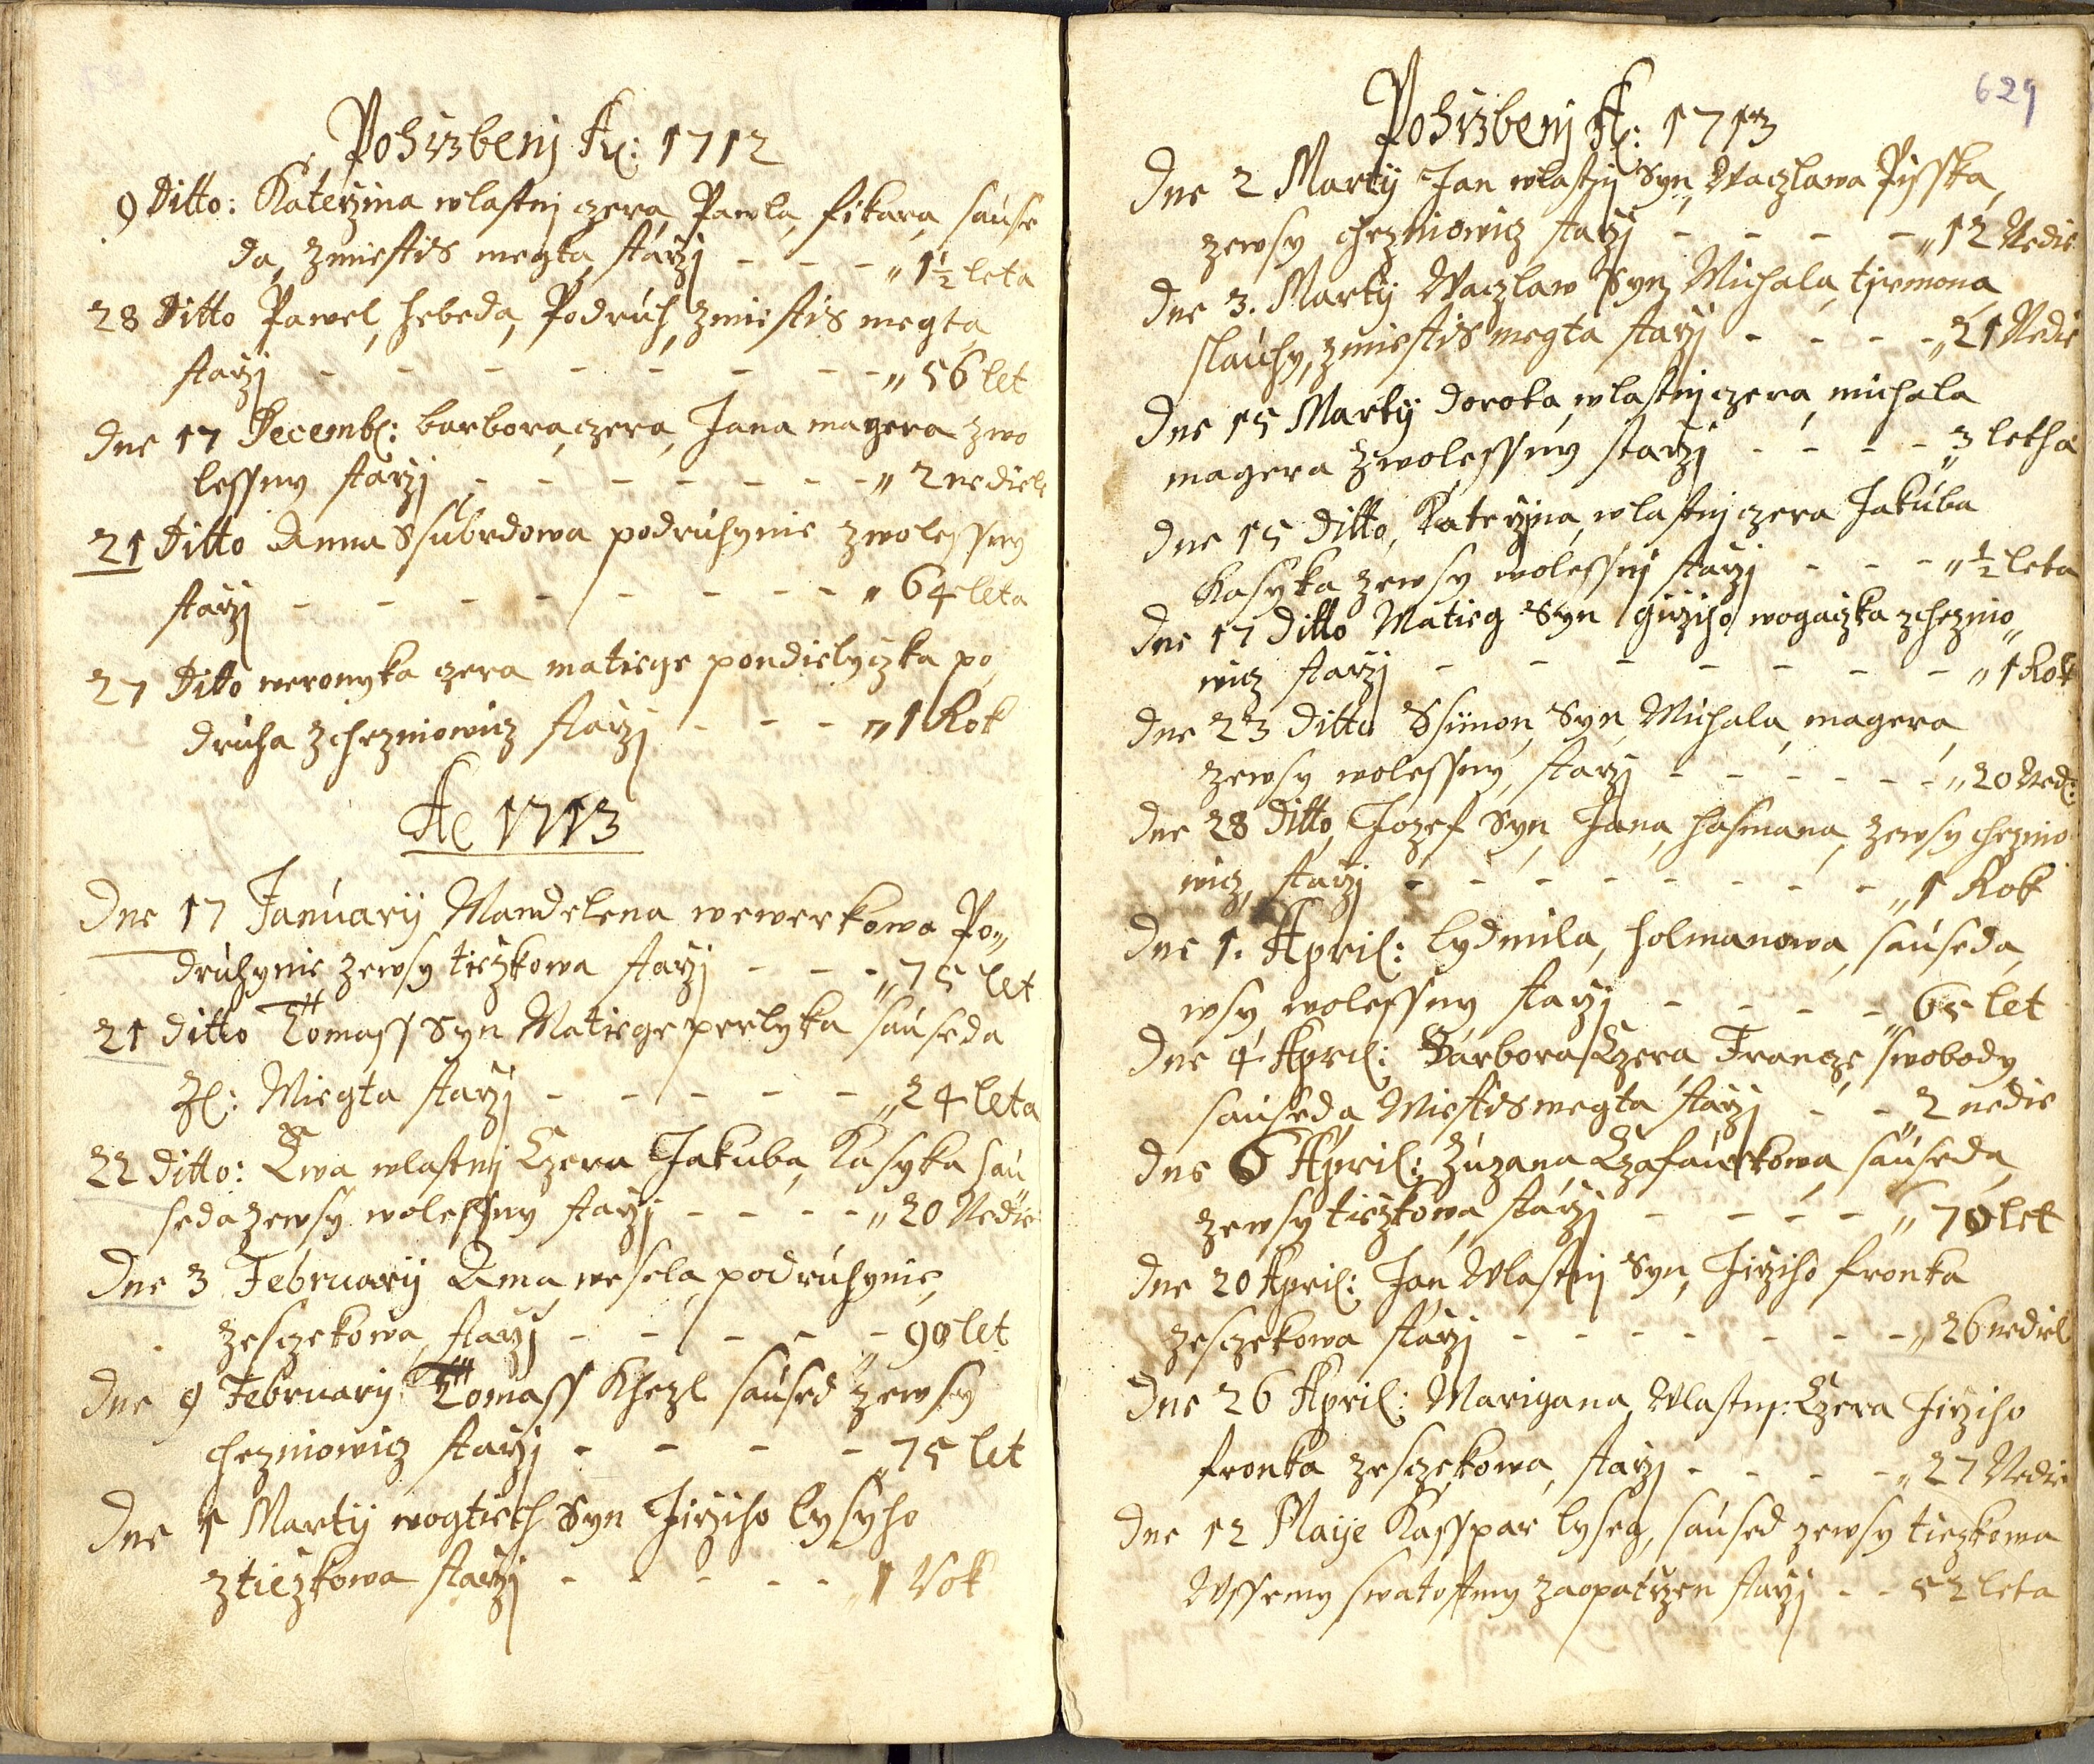 Pohrzbenj A: 1712
9 Ditto: Katerzina wlastnj czera Pawla, fikara, sause
da, zmiestis megta starzj - - - „ 1½ leta
28 Ditto Pawel, hebeda, Podruh, zmiestis megta
starzj - - - - - - - „ 56 let
Dne 17 Decemb: barbora, czera, Jana magera zwo
lessny starzj - - - - - - „ 2 nediele
21 Ditto Anna Ssubrdowa podruhynie zwolessny
starzj - - - - - - - „ 64 leta
27 Ditto weronyka czera matiege pondielyczka po
druha zchezniowicz starzj - - - „ 1 Rok
A 1713
Dne 17 Januarij Mandelena wewerkowa Po„
druhynie zewsy tieczkowa starzj - - - „ 75 let
21 ditto Tomass Syn Matiege perlyka sauseda
Miegta starzj - - - - - „ 24 leta
22 ditto: Ewa wlastnj Czera Jakuba, Kasyka sau
seda zewsy wolessny starzj - - - - „ 20 Nedie
Dne 3 Februarij Anna wesela, podruhynie,
zesczekowa, starzj - - - - - „ 90 let
Dne 9 Februarij Tomass Khezl saused zewsy
chezniowicz starzj - - - - „ 75 let
Dne 1 Martij wogtieth Syn Jirziho lysyho
ztieczkowa starzj - - - - - „ 1 Rok
629
Pohrzbenj A: 1713
Dne 2 Martij Jan wlastnj Syn, Waczlawa Pisska,
zewsy chezniowicz starzj - - - - „ 12 Nedie
Dne 3. Martij Waczlaw Syn Michala, tjrmona
slauhy, zmiestis megta starzj - - - - „ 21 Nedie
Dne 15 Martij Dorota, wlastnj czera, michala
magera zwolessny starzj - - - - „ 3 letha
Dne 15 Ditto, Katerzina, wlastnj czera Jakuba
Kasyka zewsy wolessnj starzj - - - „ ½ leta
Dne 17 Ditto Matieg Syn girziho wogaczka zcheznio„
wicz starzj - - - - - - - „ 1 Rok
Dne 23 Ditto Ssimon, Syn, Michala, magera,
zewsy wolessny, starzj - - - - - - „ 20 Ned:
Dne 28 Ditto, Jozef Syn, Jana, hasmana, zewsy cheznio
wicz, starzj - - - - - - - - „ 1 Rok
Dne 1. April: lydmila, holmanowa, sauseda,
wsy wolessny starzj - - - - „ 65 let
Dne 4. April: Barbora Czera Francze, swobody
sauseda Miestis megta starzj - - „ 2 nedie
Dne 6 April: Zuzana, Czafaurkowa, sauseda,
zewsy tieczkowa, starzj - - - - „ 70 let
Dne 20 April: Jan Wlastnj Syn, Jirziho fronka
zesczekowa starzj - - - - - - - „ 26 nediel
Dne 26 April: Marigana, Wlastnj: Czera Jirziho
fronka zesczekowa, starzj - - - - „ 27 Nedie
Dne 12 Maije Kasspar lyseg, saused zewsy tieczkowa
Wssemy swatostmy zaopatrzen starzj - - 52 leta